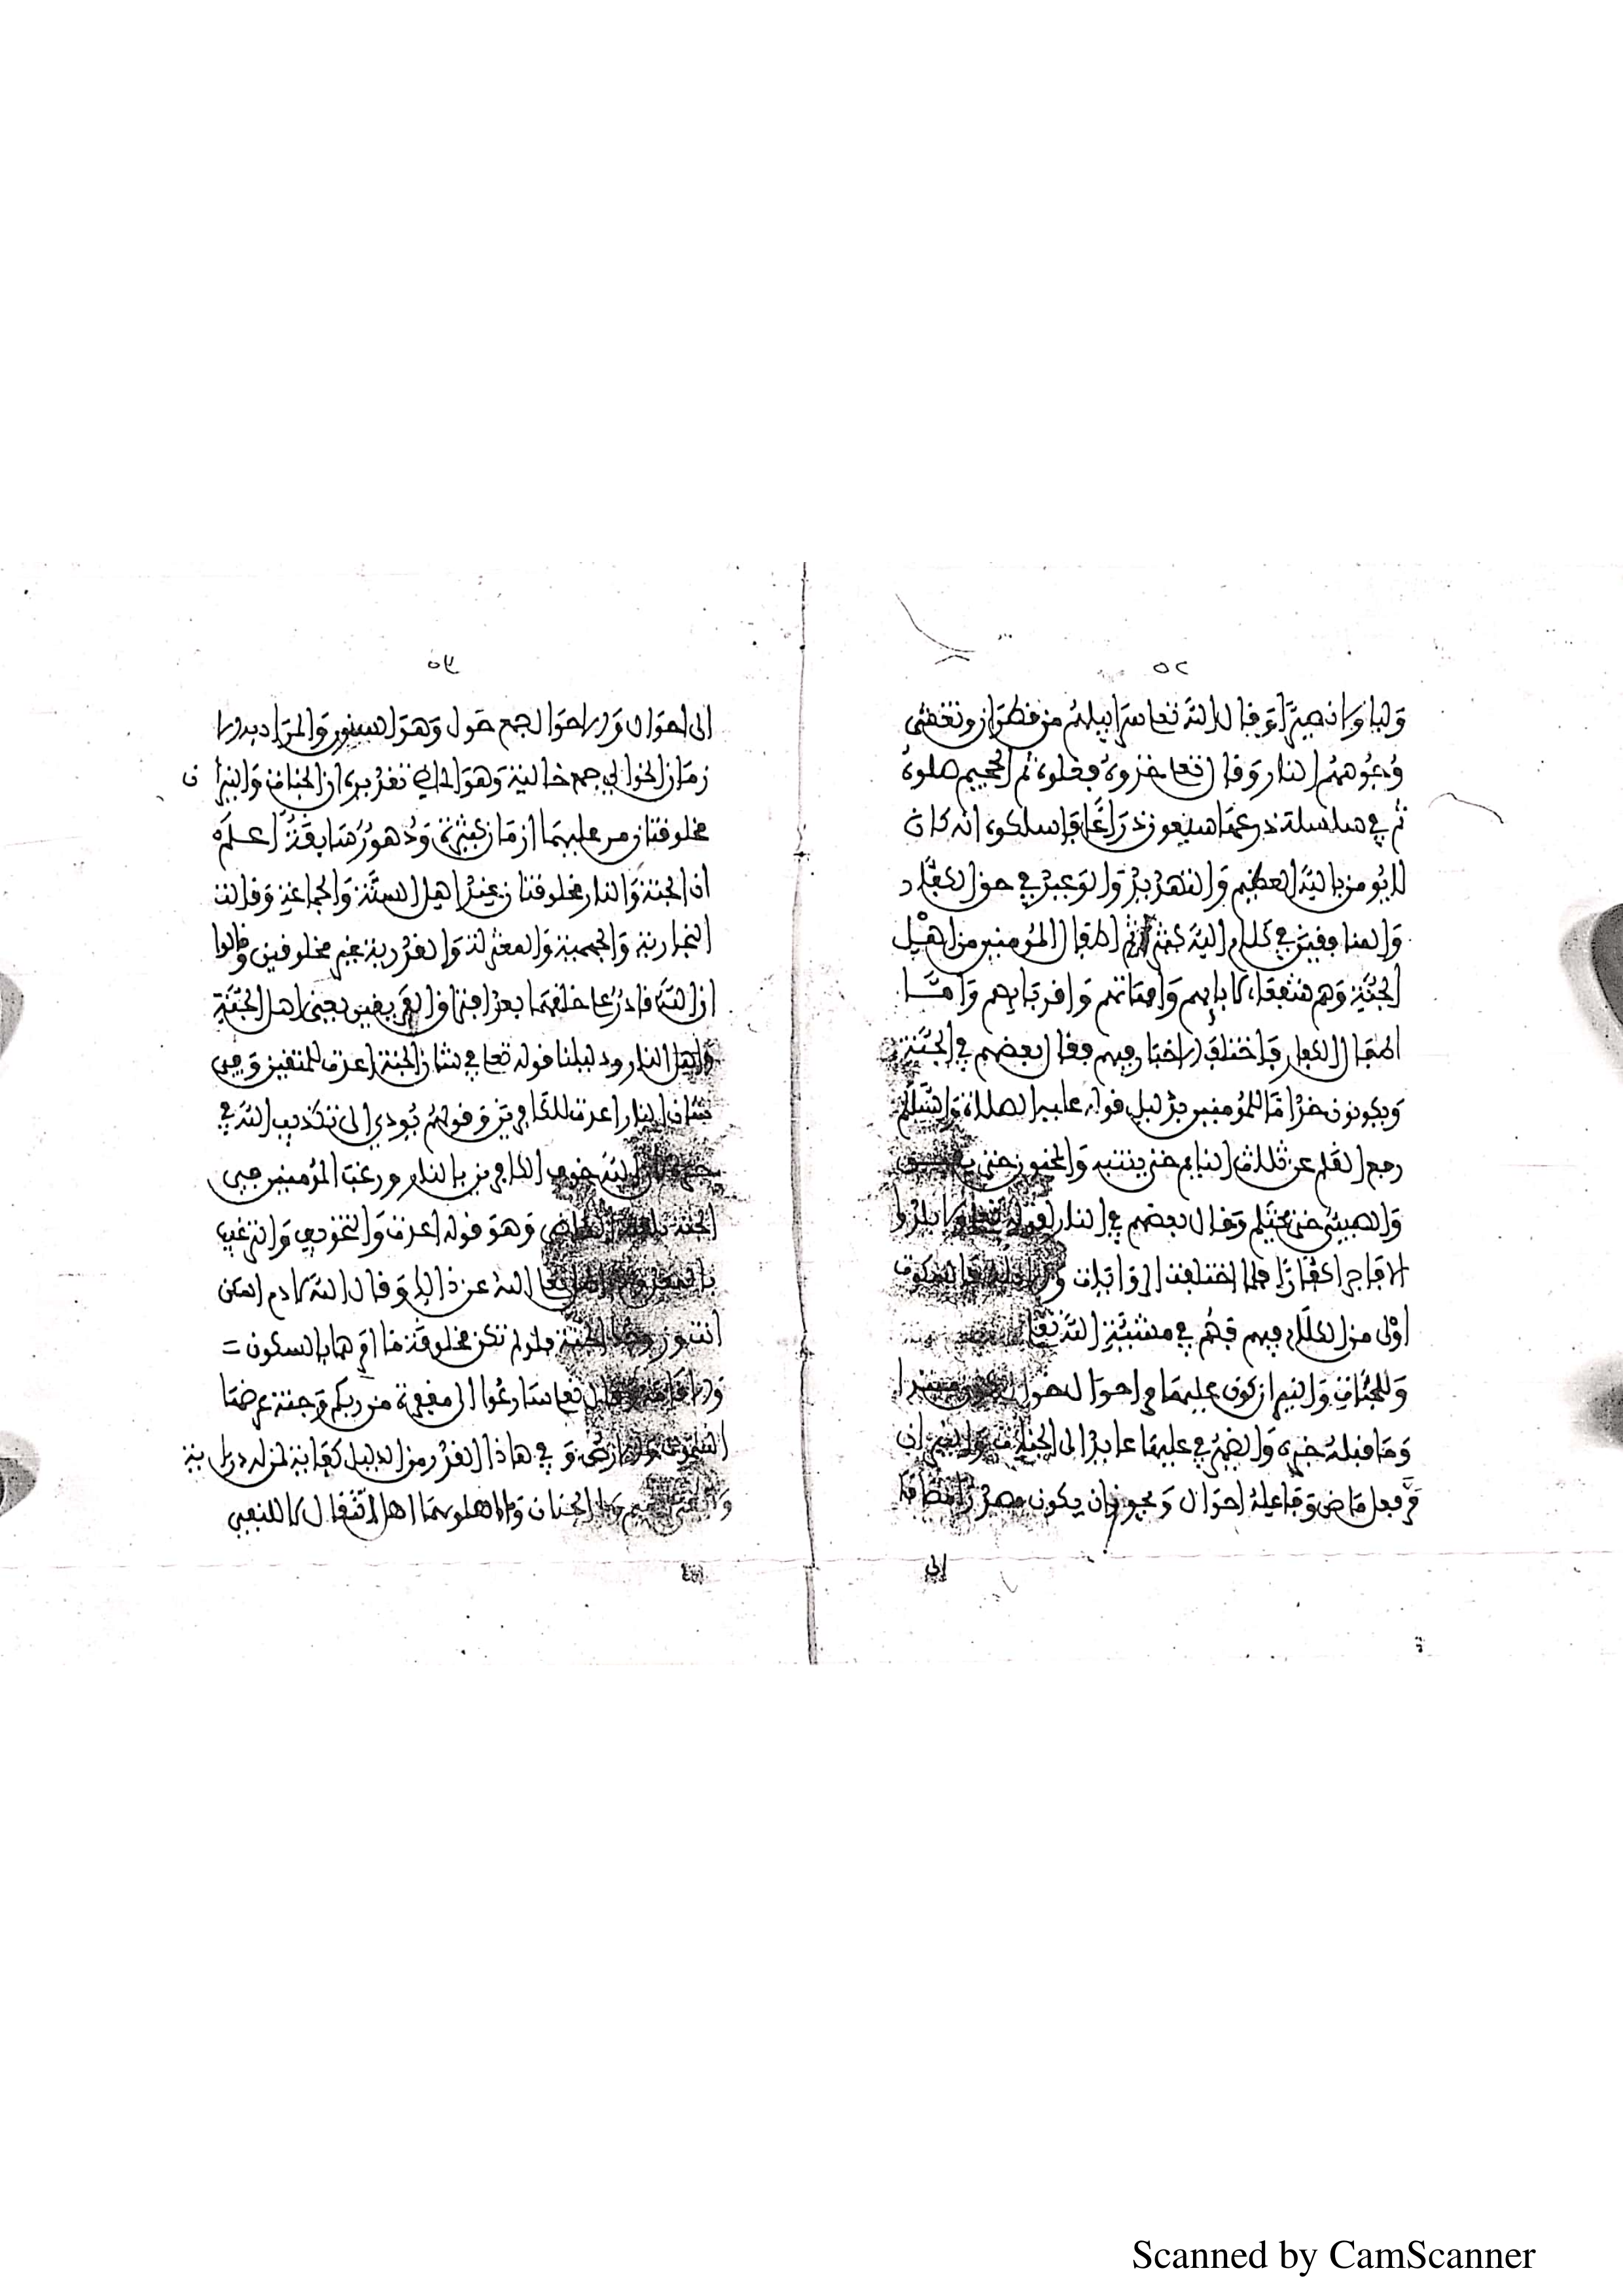 ٥٢
وليا ولا نصيرا وقال الله تعا سرابيلهم من قطران وتغشى
وجوههم النار وقال تعا خذوه فغلوه ثم الجحيم صلوه
ثم في سلسلة ذرعها سبعون ذراعا فاسلكوه انه كان
لا يومن بالله العظيم والتهديد والوعيد في حق الكفار
والمنافقين في كلام الله كثير ثم اطفال المؤمنين من اهل
الجنة وهم شفعاء لابايهم وامهاتهم واقربايهم واما
اطفال الكفار فاختلف الاخبار فيهم فقال بعضهم في الجنة
ويكونون خداما للمؤمنين بدليل قوله عليه الصلاة والسلام
رجع القلم عن ثلاث النايم حتى ينتبه والمجنون حتى يفيق
والصبيي حتى يحتلم وقال بعضهم في النار لقوله تعا ولا يلدوا
الا فاجرا كفارا فلما اختلفت الروايات فالسكوت
اولى من الكلام فيهم فهم في مشيئة الله تعا
وللجنات والنيران كون عليها مر احوال خوال
وما قبله خبره والضمير في عليها عايد الى الجنات والنيران
مر فعل ماض وفاعله احوال ويجوز ان يكون مصدرا مضافا
الى
٥٣
الى احوال والاحوال جمع حول وهو السنون والمراد به الا
زمان الخوالي جمع خالية وهو الماضي تقديره ان الجنات والنيرا ن
مخلوقتان مر عليهما ازمان كثيرة ودهور سابقة اعلم
ان الجنة والنار مخلوقتان عند اهل السنة والجماعة وقالت
النجارية والجهمية والمعتزلة والقدرية غير مخلوقين وقالوا
ان الله قادر على خلقهما بعد افتراق الفريقين يعني اهل الجنة
واهل النار ودليلنا قوله تعا في شان الجنة اعدت للمتقين وفي
شان النار اعدت للكافرين وقولهم يودي الى تكذيب الله في
الله خوف الكافرين بالنار ورغب المؤمنين في
الجنة وهو قوله اعدت والتخويف والترغيب
تعا الله عن ذالك وقال الله لادم اسكن
انت وزوجك الجنة فلو لم تكن مخلوقة ما امرهما بالسكون =
وقال تعا سارعوا الى مغفرة من ربكم وجنة عرضها
السموات والارض وفي هاذا القدر من الدليل كفاية لمن له دراية
الجنان ولا اهلوهما اهل انتقال